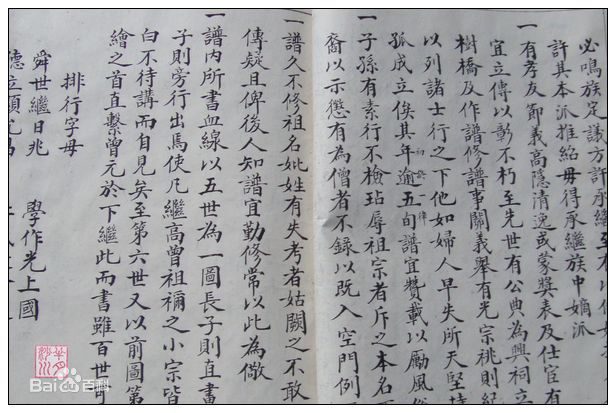 必鳴族定議方許承繼至
許其本派推結毋得承繼族中嫡派
一有孝友節義高隱清逸或蒙獎表及仕宦有
宜立傳以彰不朽至先世有公典為興祠立
樹橋及作譜修譜事關義舉有光宗祧則紀
以列諸士行之下他如婦人早失所天堅持
孤成立俟其年逾五旬譜宜贊載以勵風俗
一子孫有素行不檢玷辱祖宗者斥之本名下
裔以示懲有為僧者不錄以既入空門例
一譜久不修祖名妣姓有失考者姑闕之不敢
傳疑且俾後人知譜宜勤修常以此為儆
一譜內所書血線以五世為一圖長子則直書
子則旁行出焉使凡繼高曾祖禰之小宗皆
白不待講而自見矣至第六世又以前圖第
繪之首直繫曾元於下繼此而書雖百世
排行字母
舜世繼日兆 學作光上國
德立顯
Bai 百科